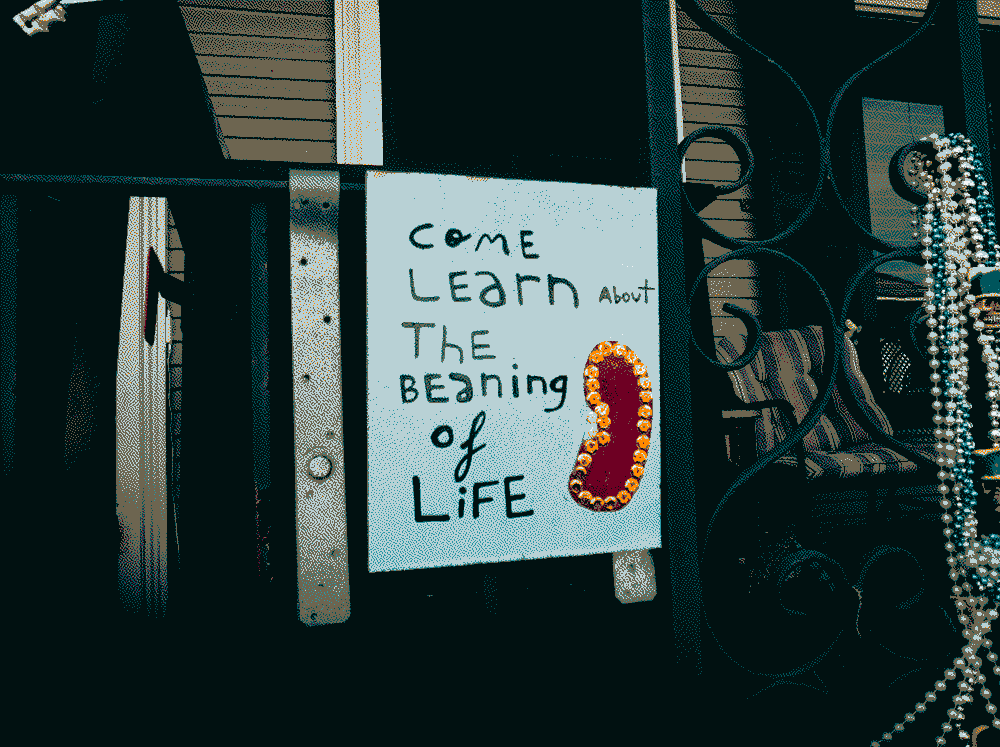 COME
LEarn About
ThE
BEaning
of
LiFE